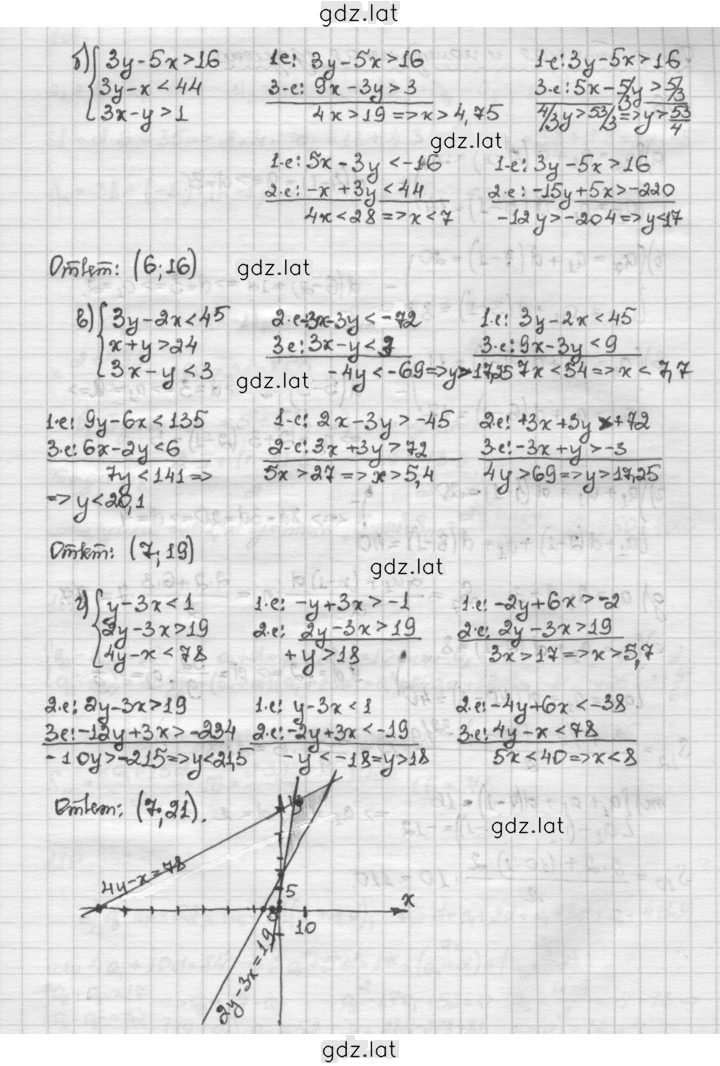 gdz.lat
б) { 3y-5x>16   1е: 3y-5x>16   1-е: 3y-5x>16
3y-x<44   3-е: 9x-3y>3   3-е: 5x-5/3y>5/3
3x-y>1   4x>19 => x>4,75   4/3y>53/3 => y>53/4
gdz.lat
1-е: 5x-3y<-16   1-е: 3y-5x>16
2.е: -x+3y<44   2.е: -15y+5x>-220
4x<28 => x<7   -12y>-204 => y<17
Ответ: (6;16)   gdz.lat
в) { 3y-2x<45   2.е -3x-3y<-72   1.е: 3y-2x<45
x+y>24   3е: 3x-y<3   3-е: 9x-3y<9
3x-y<3   gdz.lat   -4y<-69 => y>17,25   7x<54 => x<7,7
1.е: 9y-6x<135   1-е: 2x-3y>-45   2.е: +3x+3y>+72
3.е: 6x-2y<6   2-е: 3x+3y>72   3-е: -3x+y>-3
7y<141 =>   5x>27 => x>5,4   4y>69 => y>17,25
=> y<20,1
Ответ: (7;19)   gdz.lat
г) { y-3x<1   1.е: -y+3x>-1   1.е: -2y+6x>-2
2y-3x>19   2.е: 2y-3x>19   2.е: 2y-3x>19
4y-x<78   +y>18   3x>17 => x>5,7
2.е: 2y-3x>19   1.е: y-3x<1   2.е: -4y+6x<-38
3е: -12y+3x>-234   2.е: -2y+3x<-19   3.е: 4y-x<78
-10y>-215 => y<21,5   -y<-18 = y>18   5x<40 => x<8
Ответ: (7,21).   gdz.lat
4y-x=78
5
x
0
10
2y-3x=19
gdz.lat